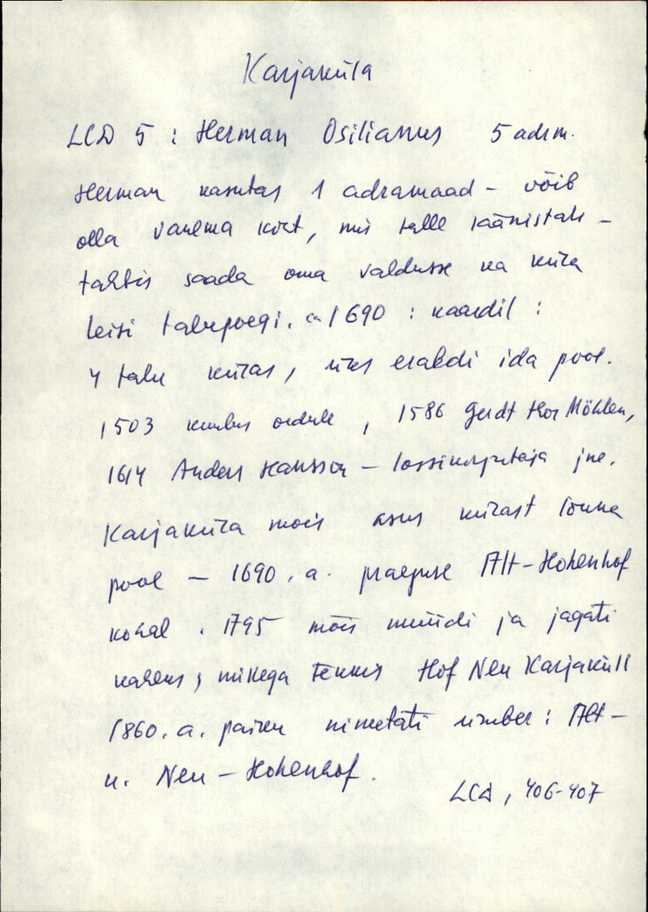 Karjaküla
LCD 5 : Herman Osilianus 5 adrm.
Herman kasutas 1 adramaad – võib
olla vanema koet, mis talle läänistati –
tahtis saada oma valdusse ka küla
teisi talupoegi. ca 1690 : kaardil :
4 talu külas, üks eraldi ida pool.
1503 kuulus ordule, 1586 Gerdt thor Möhlen,
1614 Anders Hansson – lossikirjutaja jne.
Karjaküla mõis asus külast lõuna
pool – 1690. a. praeguse Alt-Hohenhof
kohal. 1795 mõis müüdi ja jagati
kaheks, millega tekkis Hof Neu Karjaküll
1860. a. paiku nimetati ümber : Alt –
u. Neu – Hohenhof.
LCD, 406-407